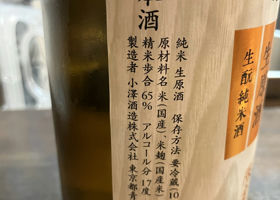 澤酒
純米 生原酒 保存方法 要冷蔵(10
原材料名 米(国産)、米麹(国産米)
精米歩合 65% アルコール分 17度
製造者 小澤酒造株式会社 東京都青
生酛純米酒
原酒